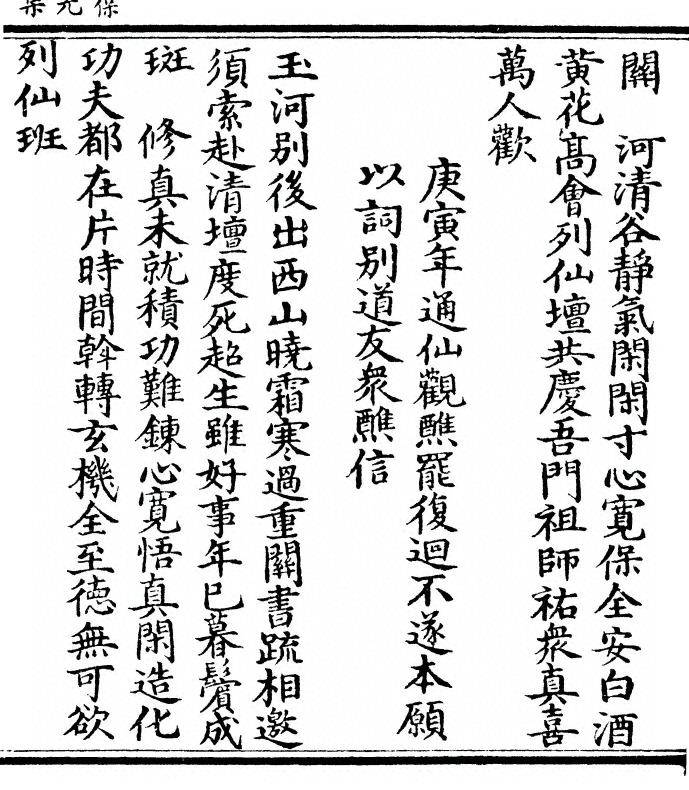 關　河清谷靜氣閑閑寸心寬保全安白酒
黄花高會列仙壇共慶吾門祖師祐衆真喜
萬人歡
庚寅年通仙觀醮罷復迴不遂本願
以詞别道友衆醮信
玉河别後出西山曉霜寒過重關書䟽相邀
須索赴清壇度死超生雖好事年已暮鬢成
斑　修真未就積功難鍊心寬悟真閑造化
功夫都在片時間斡轉玄機全至德無可欲
列仙班